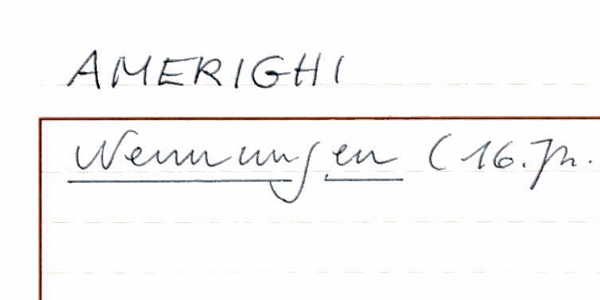 AMERIGHI
Nennungen (16. Jh.